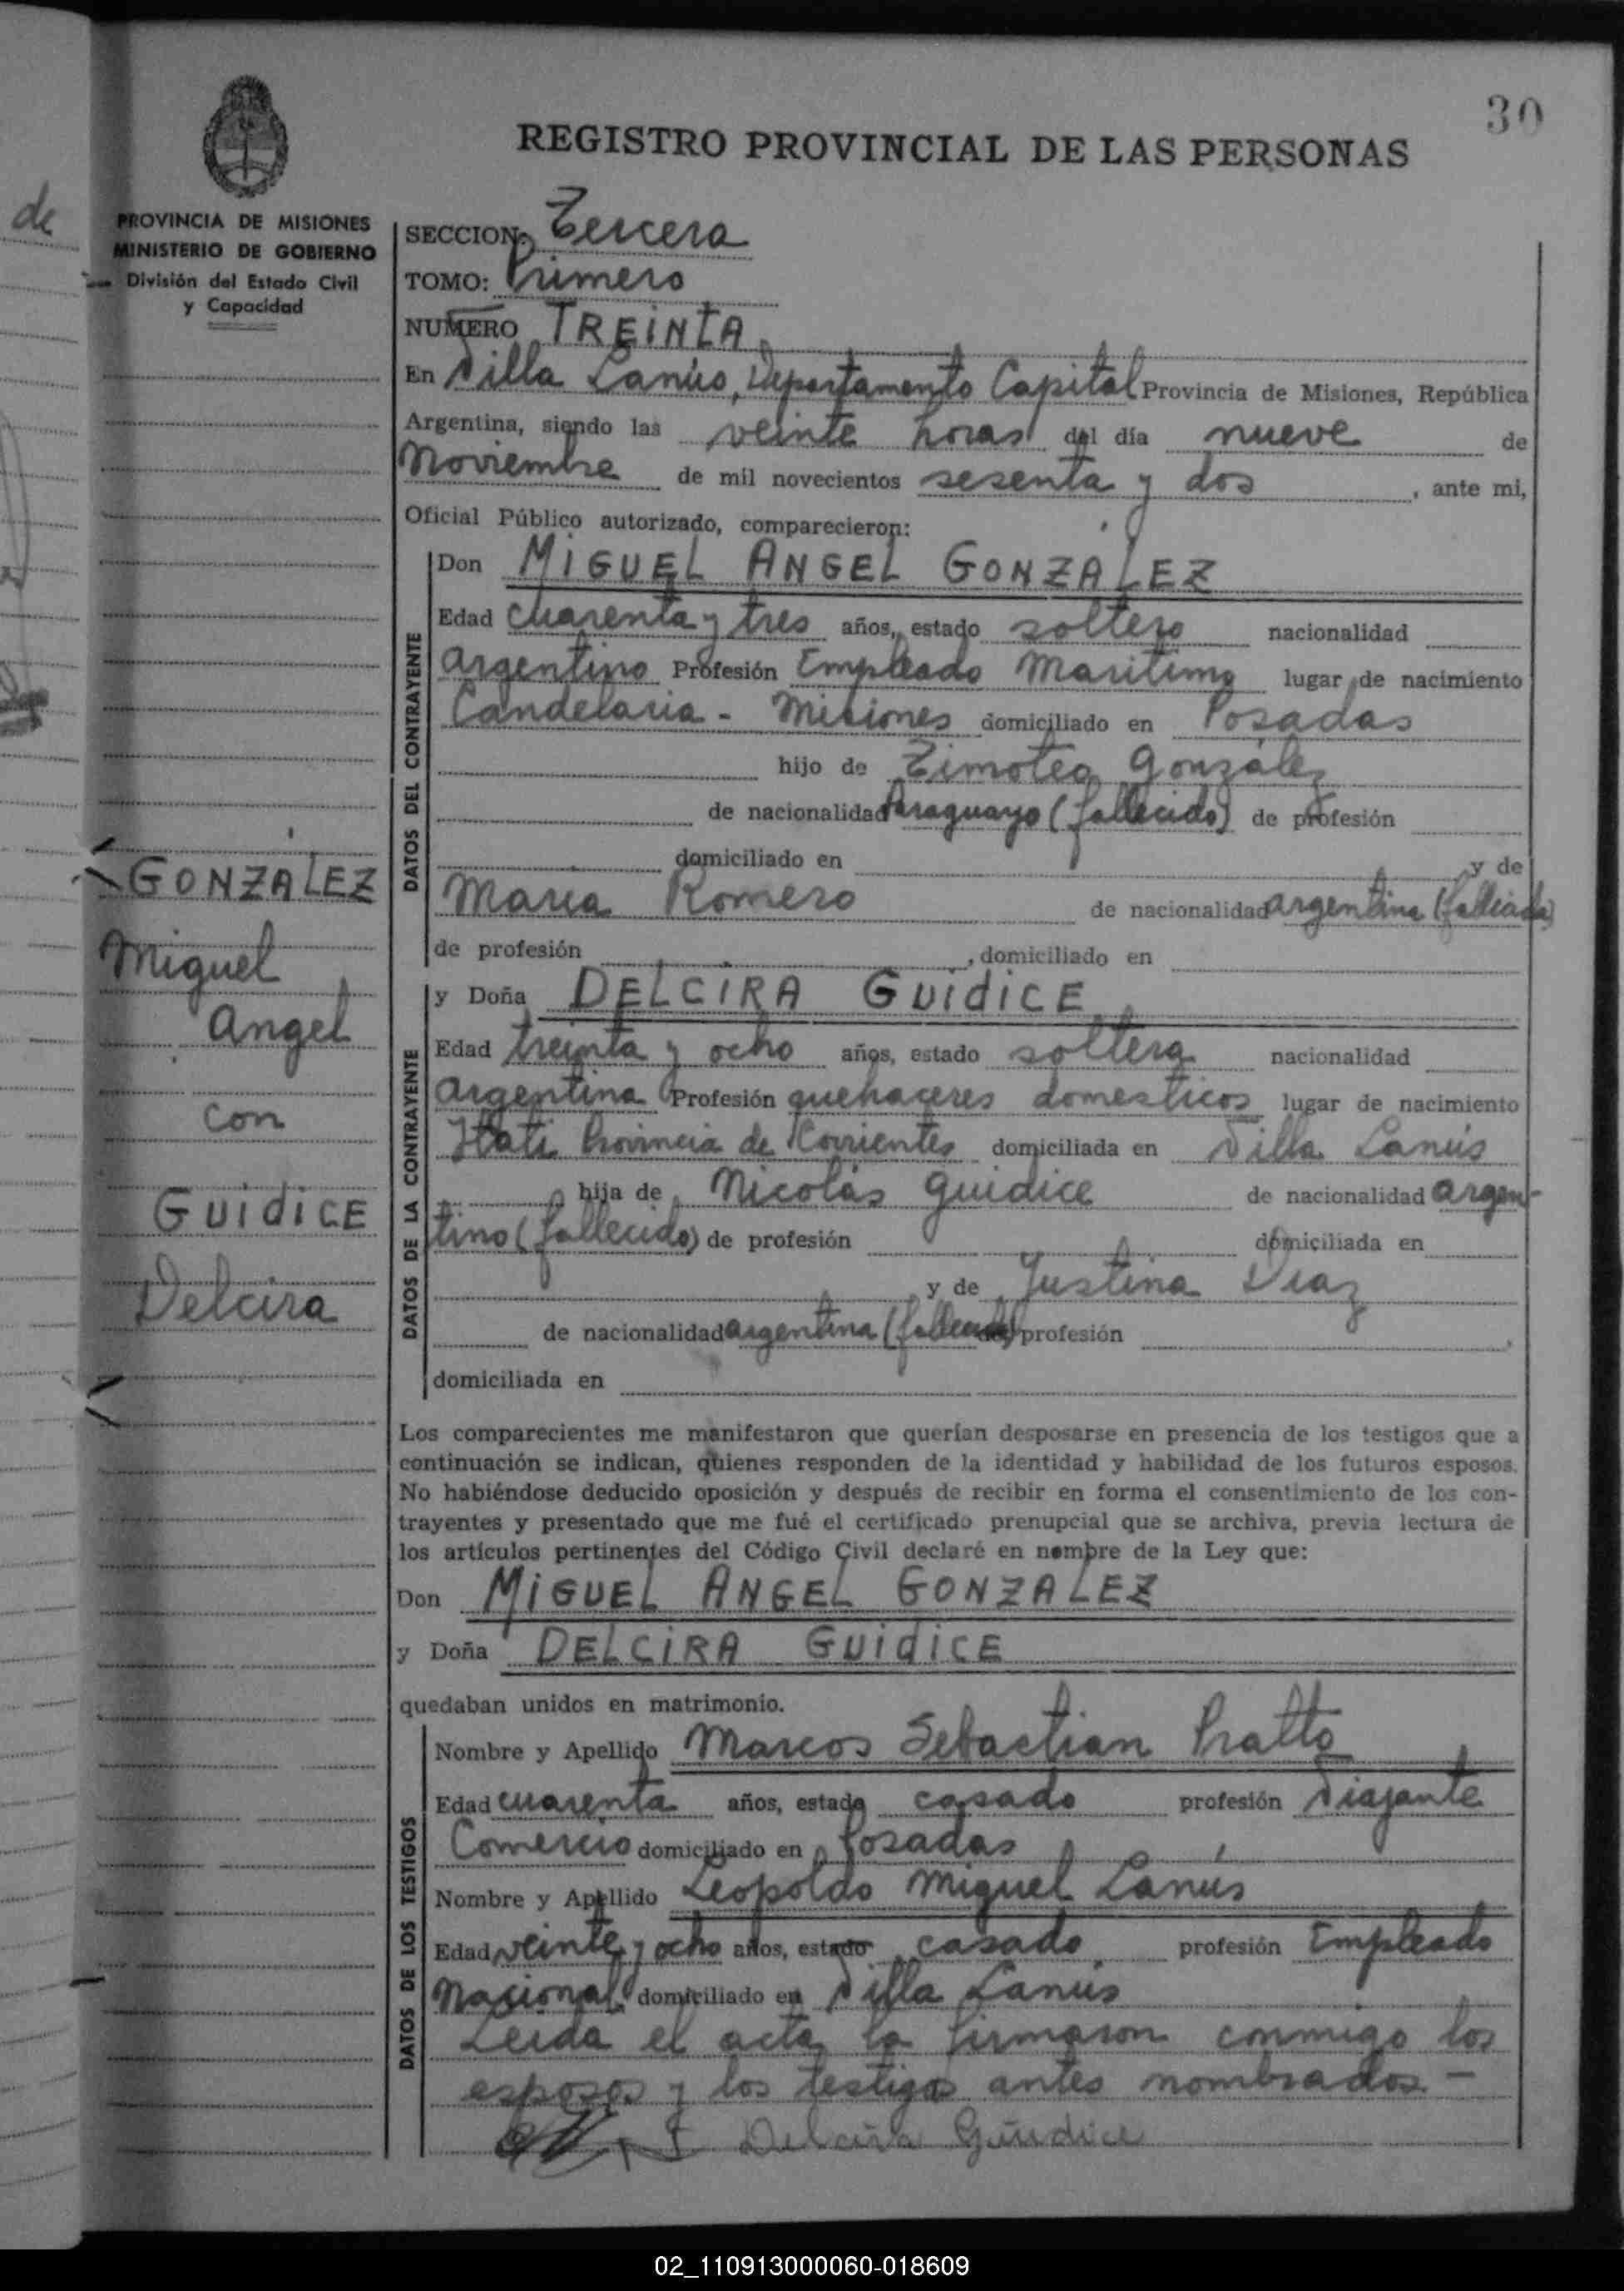 30
REGISTRO PROVINCIAL DE LAS PERSONAS
de
PROVINCIA DE MISIONES
MINISTERIO DE GOBIERNO
División del Estado Civil
y Capacidad
SECCION: Tercera
TOMO: Primero
NUMERO TREINTA
En Villa Lanús, Departamento Capital Provincia de Misiones, República
Argentina, siendo las veinte horas del día nueve de
Noviembre de mil novecientos sesenta y dos, ante mi,
Oficial Público autorizado, comparecieron:
DATOS DEL CONTRAYENTE
Don MIGUEL ANGEL GONZALEZ
Edad cuarenta y tres años, estado soltero nacionalidad
argentino Profesión Empleado Maritimo lugar de nacimiento
Candelaria - Misiones domiciliado en Posadas
hijo de Timoteo González
de nacionalidad Paraguayo (fallecido) de profesión
domiciliado en y de
María Romero de nacionalidad argentina (fallecida)
de profesión , domiciliado en
GONZALEZ
Miguel
Angel
con
GUIDICE
Delcira
DATOS DE LA CONTRAYENTE
y Doña DELCIRA GUIDICE
Edad treinta y ocho años, estado soltera nacionalidad
Argentina Profesión quehaceres domesticos lugar de nacimiento
Itati Provincia de Corrientes domiciliada en Villa Lanús
hija de Nicolás Guidice de nacionalidad argen-
tino (fallecido) de profesión domiciliada en
y de Justina Diaz
de nacionalidad argentina (fallecida) profesión ,
domiciliada en
Los comparecientes me manifestaron que querían desposarse en presencia de los testigos que a
continuación se indican, quienes responden de la identidad y habilidad de los futuros esposos.
No habiéndose deducido oposición y después de recibir en forma el consentimiento de los con-
trayentes y presentado que me fué el certificado prenupcial que se archiva, previa lectura de
los artículos pertinentes del Código Civil declaré en nombre de la Ley que:
Don MIGUEL ANGEL GONZALEZ
y Doña DELCIRA GUIDICE
quedaban unidos en matrimonio.
DATOS DE LOS TESTIGOS
Nombre y Apellido Marcos Sebastian Pratto
Edad cuarenta años, estado casado profesión Viajante
Comercio domiciliado en Posadas
Nombre y Apellido Leopoldo Miguel Lanús
Edad veinte y ocho años, estado casado profesión Empleado
Nacional domiciliado en Villa Lanús
Leida el acta la firmaron conmigo los
esposos y los testigos antes nombrados. -
Delcira Guidice
02_110913000060-018609